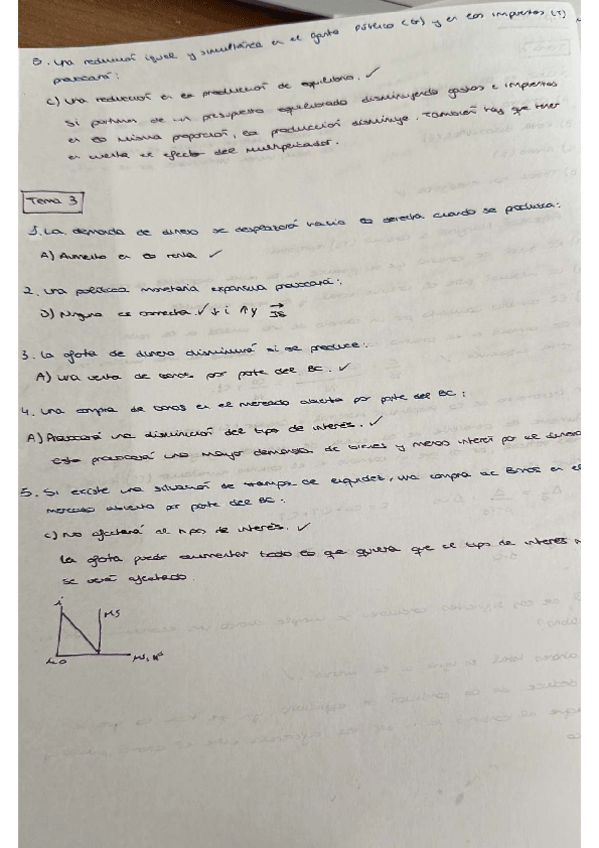 8. Una reducción igual y simultánea en el gasto público (G) y en los impuestos (T)
provocará:
C) Una reducción en la producción de equilibrio. ✓
Si partimos de un presupuesto equilibrado disminuyendo gastos e impuestos
en la misma proporción, la producción disminuye. También hay que tener
en cuenta el efecto del multiplicador.
Tema 3
1. La demanda de dinero se desplazará hacia la derecha cuando se produzca:
A) Aumento en la renta ✓
2. Una política monetaria expansiva provocará:
D) Ninguna es correcta. ✓ ↓i ↑y
3. La oferta de dinero disminuirá si se produce:
A) Una venta de bonos por parte del BC. ✓
4. Una compra de bonos en el mercado abierto por parte del BC:
A) Provocará una disminución del tipo de interés. ✓
esto provocará una mayor demanda de bienes y menos interés por el dinero
5. Si existe una situación de trampa de liquidez, una compra de Bonos en el
mercado abierto por parte del BC:
C) No afectará al tipos de interés. ✓
La oferta puede aumentar todo lo que quiera que el tipo de interés
se verá afectado.
i
MS